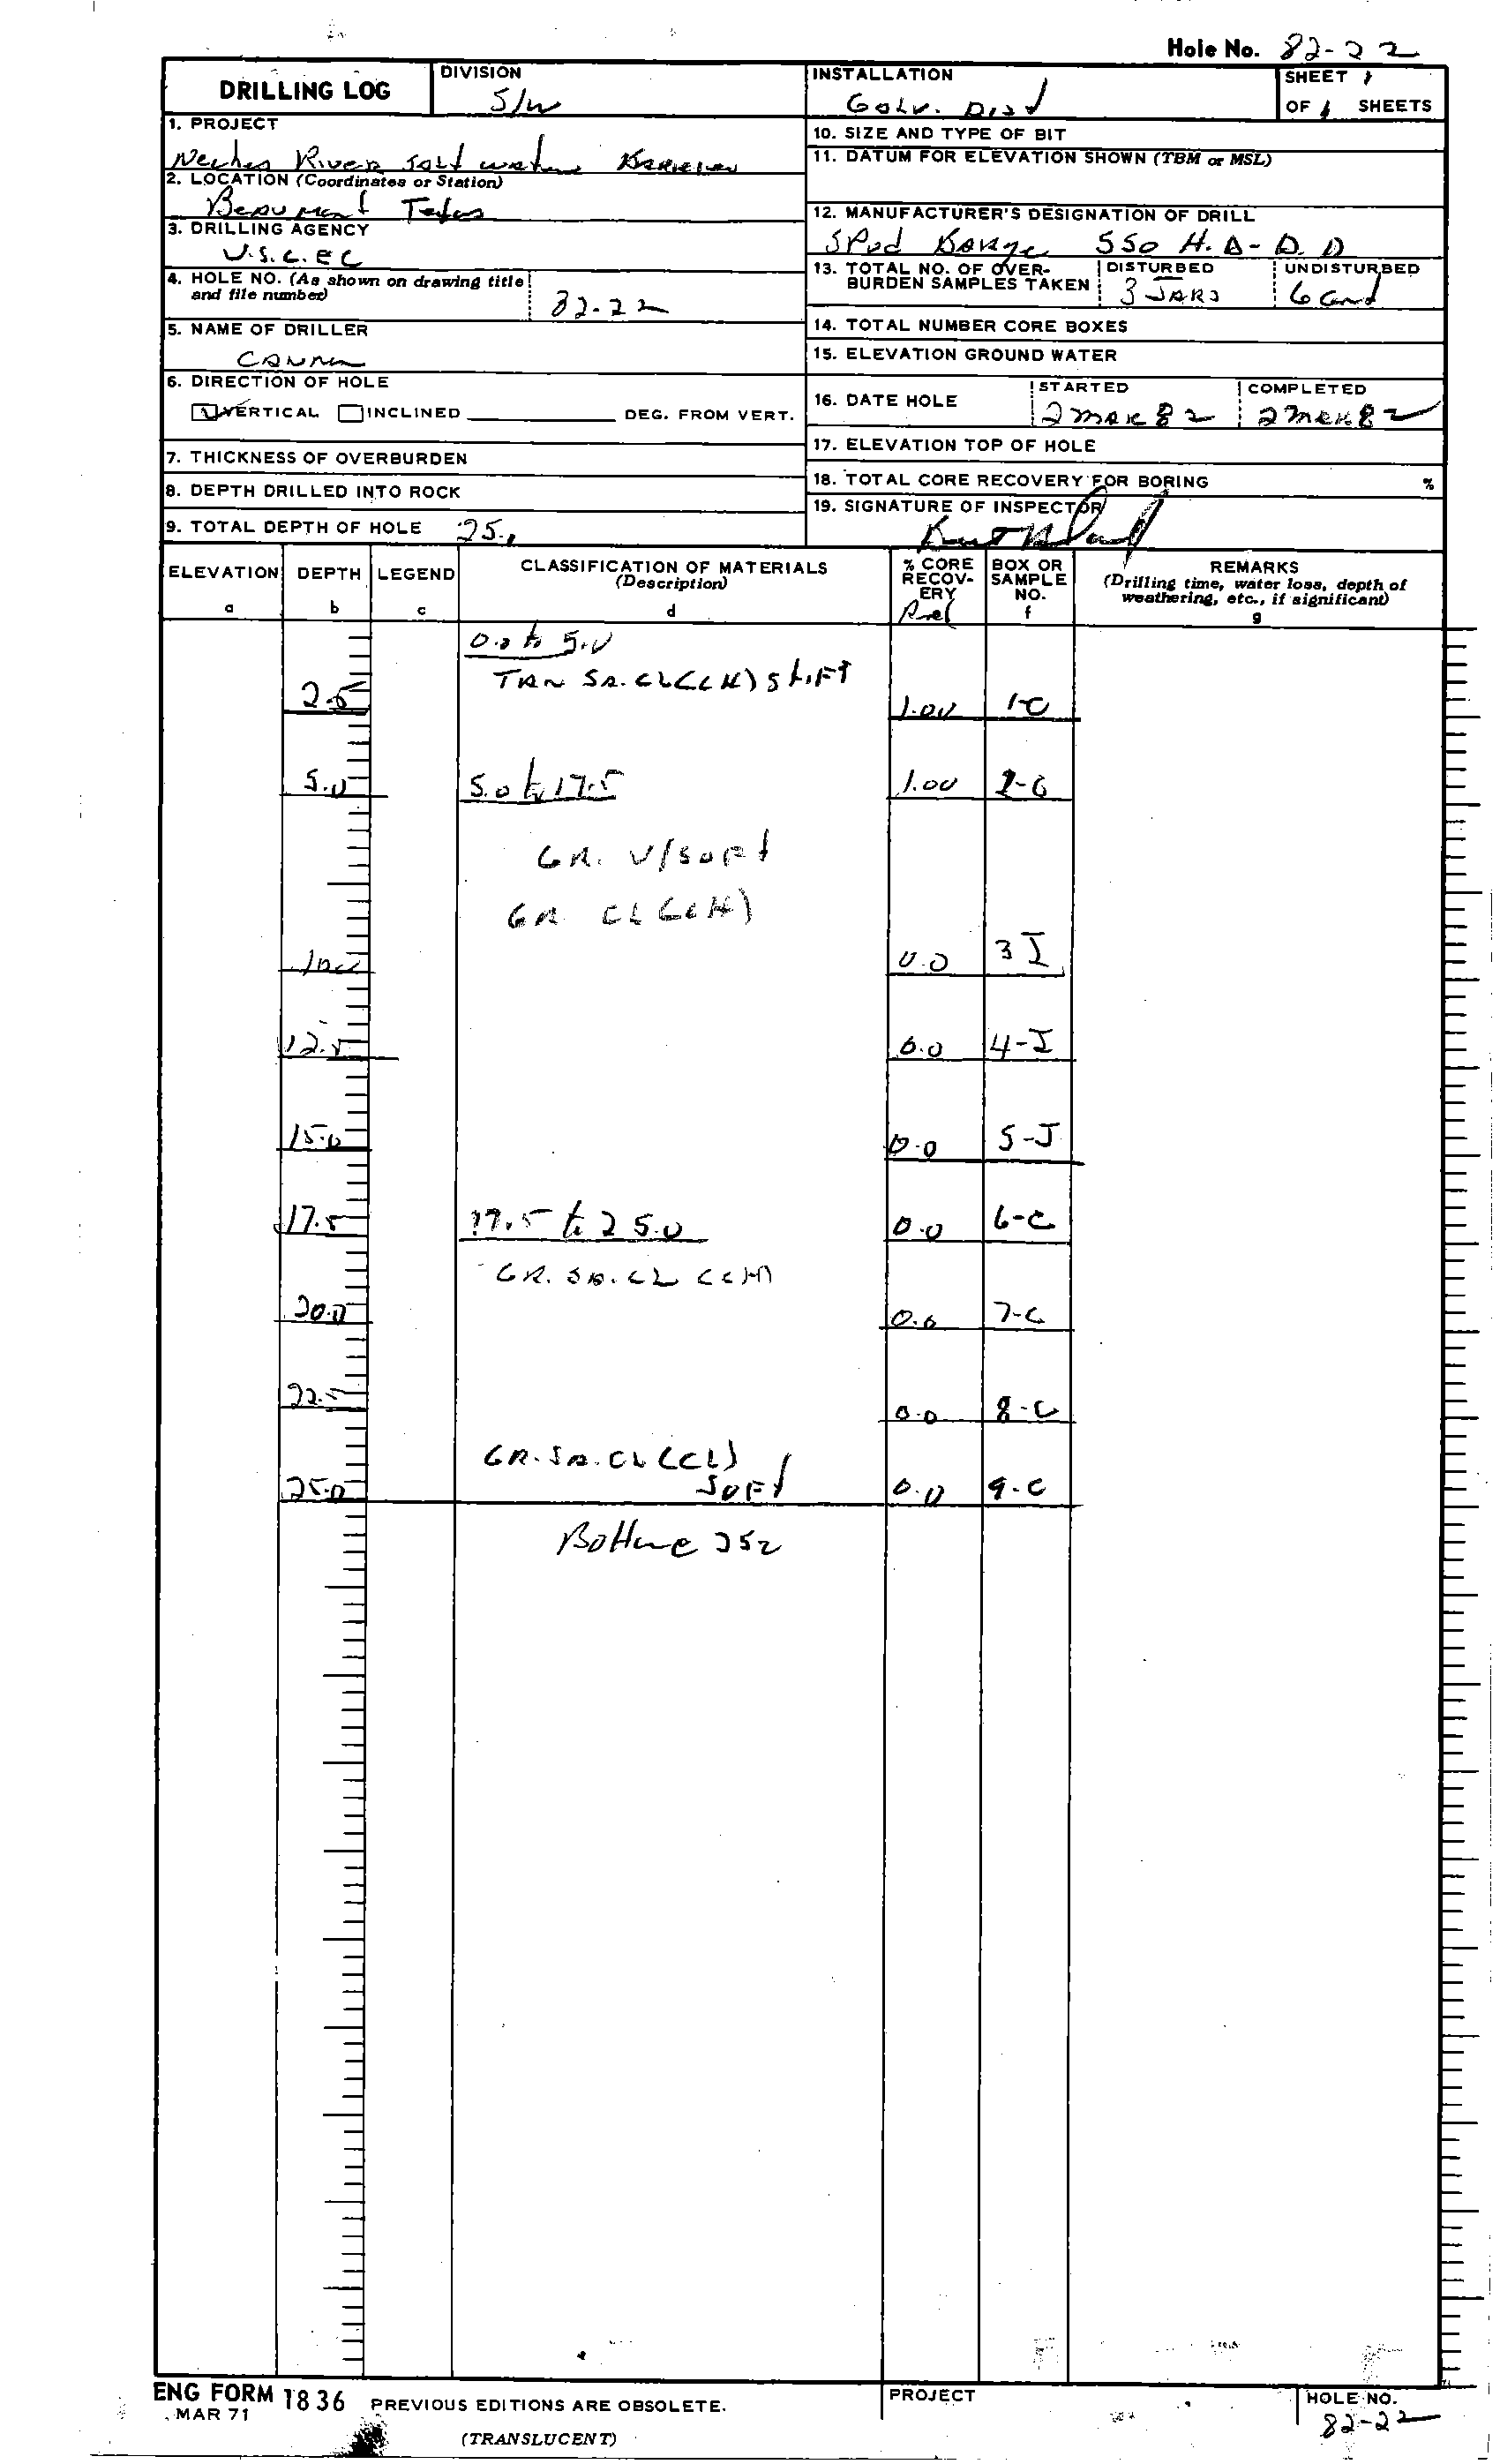 Hole No. 82-22
DRILLING LOG
DIVISION
S/W
INSTALLATION
Galv. Dist
SHEET 1
OF 1 SHEETS
1. PROJECT
Neches River salt water Barrier
2. LOCATION (Coordinates or Station)
Beaumont Texas
3. DRILLING AGENCY
U.S.C.EC
4. HOLE NO. (As shown on drawing title
and file number)
82-22
5. NAME OF DRILLER
6. DIRECTION OF HOLE
VERTICAL INCLINED DEG. FROM VERT.
7. THICKNESS OF OVERBURDEN
8. DEPTH DRILLED INTO ROCK
9. TOTAL DEPTH OF HOLE 25.
10. SIZE AND TYPE OF BIT
11. DATUM FOR ELEVATION SHOWN (TBM or MSL)
12. MANUFACTURER'S DESIGNATION OF DRILL
SPud Barge 550 H.D-D.D
13. TOTAL NO. OF OVER-
BURDEN SAMPLES TAKEN
DISTURBED
3 JARS
UNDISTURBED
6
14. TOTAL NUMBER CORE BOXES
15. ELEVATION GROUND WATER
16. DATE HOLE
STARTED
2 MAR 82
COMPLETED
2 MAR 82
17. ELEVATION TOP OF HOLE
18. TOTAL CORE RECOVERY FOR BORING %
19. SIGNATURE OF INSPECTOR
ELEVATION DEPTH LEGEND CLASSIFICATION OF MATERIALS
(Description)
% CORE
RECOV-
ERY
BOX OR
SAMPLE
NO.
REMARKS
(Drilling time, water loss, depth of
weathering, etc., if significant)
a b c d f g
0.0 to 5.0
TAN SA. CL(CH) STIFF
2.5 1.00 1-C
5.0 5.0 to 17.5 1.00 2-C
GR. V/SOFT
GR CL(CH)
10.0 0.0 3 J
12.5 0.0 4-J
15.0 0.0 5-J
17.5 17.5 to 25.0 0.0 6-C
GR. SA. CL (CH)
20.0 0.0 7-C
22.5 0.0 8-C
GR. SA. CL (CL)
SOFT
25.0 0.0 9-C
ENG FORM 1836 PREVIOUS EDITIONS ARE OBSOLETE.
MAR 71
(TRANSLUCENT)
PROJECT
HOLE NO.
82-22